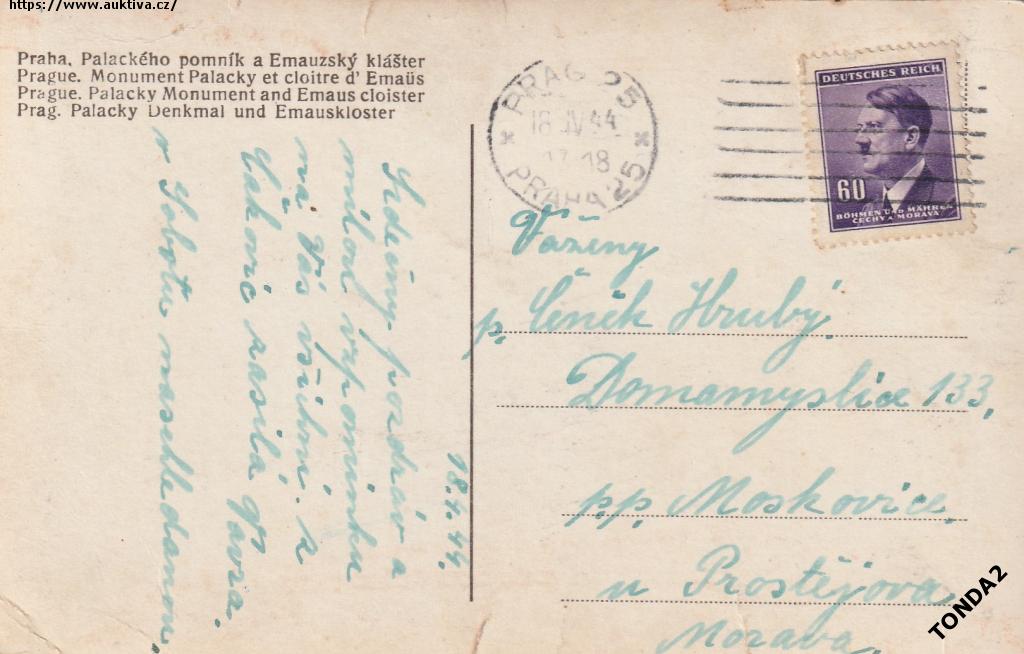 https://www.auktiva.cz/
Praha, Palackého pomník a Emauzský klášter
Prague. Monument Palacky et cloitre d' Emaüs
Prague. Palacky Monument and Emaus cloister
Prag. Palacky Denkmal und Emauskloster
PRAG 25
18 IV 44
17-18
PRAHA 25
DEUTSCHES REICH
60
BÖHMEN UND MÄHREN
ČECHY A MORAVA
18.4.44.
Srdečný pozdrav a
milou vzpomínku
na Vás všichni. z
Čakovic zasílá
v Sobotu nashledanou
Vážený
p. Čeněk Hrubý
Domamyslice 133,
pp. Moskovice
u Prostějova
Morava.
TONDA2